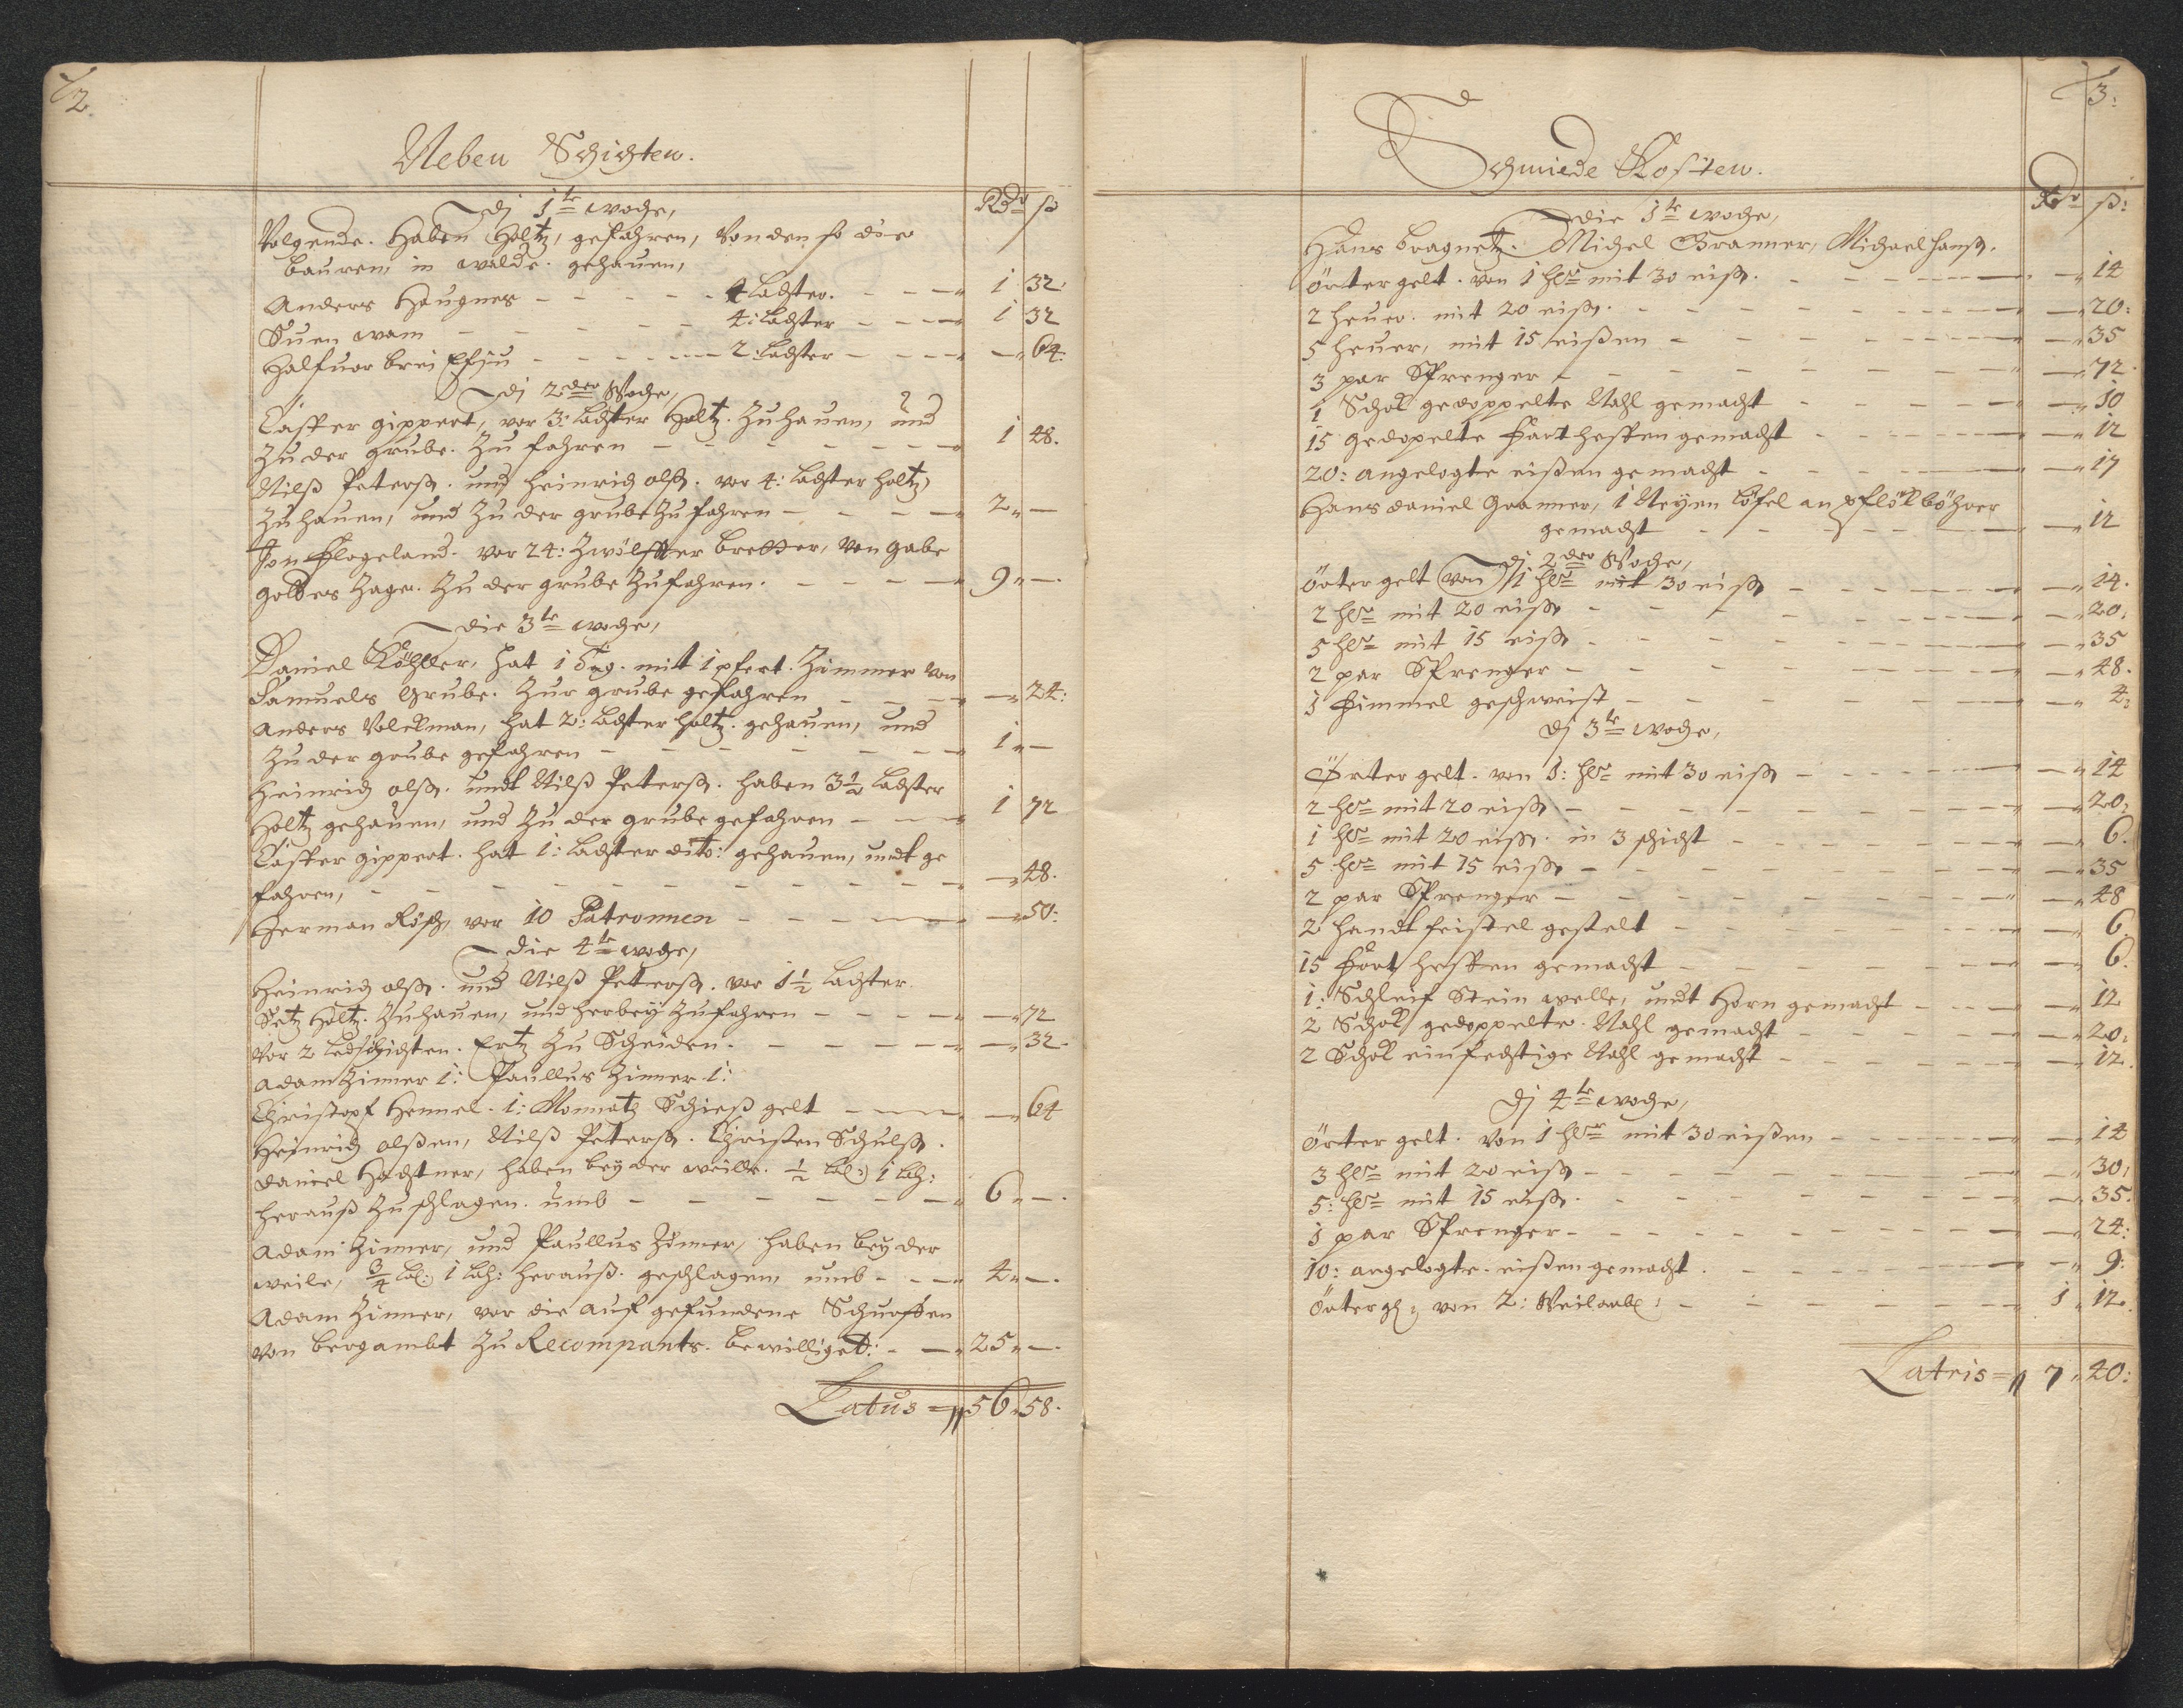 2.
Neben Schichten.
Rdr ß
Dj 1te woche,
Volgende. Haben Holtz, gefahren, Von den so die
bauren, in walde. gehauen,
Anders Haugnes - - - 4 Lachter. - - - 1 32
Suen wam - - - 4: Lachter - - - 1 32
Halfuor brei - - - 2: Lachter - - - — 64.
Dj 2der Woche,
Casper gippert, vor 3: Lachter Holtz. Zuhauen, und
Zu der grube. Zu fahren - - - 1 48.
Nilß Peterß. und Heinrich olß. vor 4: Lachter holtz,
Zuhauen, und Zu der grube Zufahren - - - 2 —
Jon Flogeland. vor 24: Zwölffter bretter, von gabe
gottes Zage. Zu der grube Zufahren. - - - 9 —.
Die 3te woche,
Daniel Köhller, hat 1 Tag. mit 1 pfert. Zimmer von
Samuels Grube. Zur grube gefahren - - - — 24:
Anders Volckman, hat 2: Lachter holtz. gehauen, und
Zu der grube gefahren - - - 1 —
Heinrich olß. undt Nilß Peterß. haben 3½ Lachter
Holtz gehauen, und Zu der grube gefahren - - - 1 72
Casper gippert. hat 1: Lachter dito: gehauen, undt ge
fahren, - - - — 48.
Herman Röß, vor 10 Patronnen - - - — 50:
Die 4te woche,
Heinrich olß. und Nilß Peterß. vor 1½ Lachter
Setz Holtz. Zuhauen, und herbey Zufahren - - - — 72
Vor 2 Ledschichten. Ertz Zu Scheiden. - - - — 32.
Adam Zinner 1: Paullus Zinner 1:
Christopf Hemmel. 1: Monnatz Schieß gelt - - - — 64
Heinrich olßen, Nilß Peterß. Christen Schulß.
Daniel Hochstner, haben bey der weille. ½ Lach: 1 Lch:
herauß Zuschlagen. umb - - - 6 —.
Adam Zinner, und Paullus Zinner, haben bey der
weile, ¾ Lch: 1 Lch: herauß. geschlagen, umb - - - 4 —.
Adam Zinner, vor die auf gefundene Schurffen
von bergambt Zu Recompants. bewilliget: - - 25 —.
Latus = 56. 58.
3:
Schmiede Kosten.
Rdr ß:
Die 1te woche,
Hans bragnetz. Michel Granner, Michael hanß.
Örter gelt. von 1 hlr mit 30 eiß. - - - — 14
2 heuer. mit 20 eiß. - - - — 20:
5 heuer, mit 15 eißen - - - — 35
3 par Sprenger - - - — 72.
1 Schock gedoppelte Nahl gemacht - - - — 10
15 gedopelte Fart hespen gemacht - - - — 12
20: angelegte eißen gemacht - - - — 17
Hans daniel Granner, 1 Neyen Löfel an pflöckböhrer
gemacht - - - — 12
Dj 2der Woche,
Örter gelt von 1 hlr mit 30 eiß - - - — 14.
2 hlr mit 20 eiß - - - — 20,
5 hlr mit 15 eiß - - - — 35
2 par Sprenger - - - — 48.
1 Fimmel geschweist - - - — 4:
Dj 3te woche,
Örter gelt. von 1: hlr mit 30 eiß - - - — 14
2 hlr mit 20 eiß - - - — 20,
1 hlr mit 20 eiß. in 3 schicht - - - — 6.
5 hlr mit 15 eiß - - - — 35
2 par Sprenger - - - — 48
2 handt feistel gestelt - - - — 6.
15 Fart hespen gemacht - - - — 6.
1: Schleif Stein welle, undt Horn gemacht - - - — 12
2 Schock gedoppelte. Nahl gemacht - - - — 20:
2 Schock einfechtige Nahl gemacht - - - — 12.
Dj 4te woche,
Örter gelt. von 1 hlr mit 30 eißen - - - — 14
3 hlr mit 20 eiß - - - — 30,
5: hlr mit 15 eiß. - - - — 35.
1 par Sprenger - - - — 24:
10: angelegte. eißen gemacht. - - - — 9:
Örterg: von 2: Weilarb: - - - 1 12.
Latris = 7. 40: